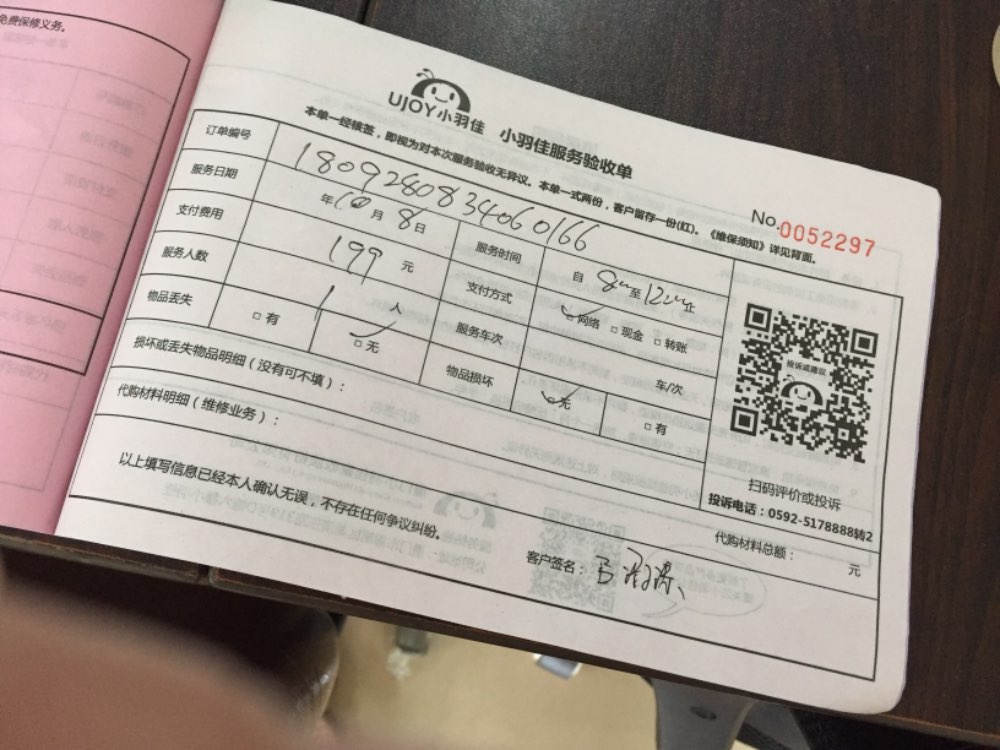 免费保修义务。
UJOY小羽佳 小羽佳服务验收单
本单一经续签,即视为对本次服务验收无异议。本单一式两份,客户留存一份(红)。《维保须知》详见背面。
No.0052297
订单编号 1809280834060166
服务日期 年10月8日 服务时间 自8:00至12:00止
支付费用 199元 支付方式 网络 □现金 □转账
服务人数 1人 服务车次 车/次
物品丢失 □有 □无 物品损坏 无 □有
损坏或丢失物品明细(没有可不填):
代购材料明细(维修业务):
代购材料总额: 元
以上填写信息已经本人确认无误,不存在任何争议纠纷。
客户签名:
投诉或建议
扫码评价或投诉
投诉电话:0592-5178888转2